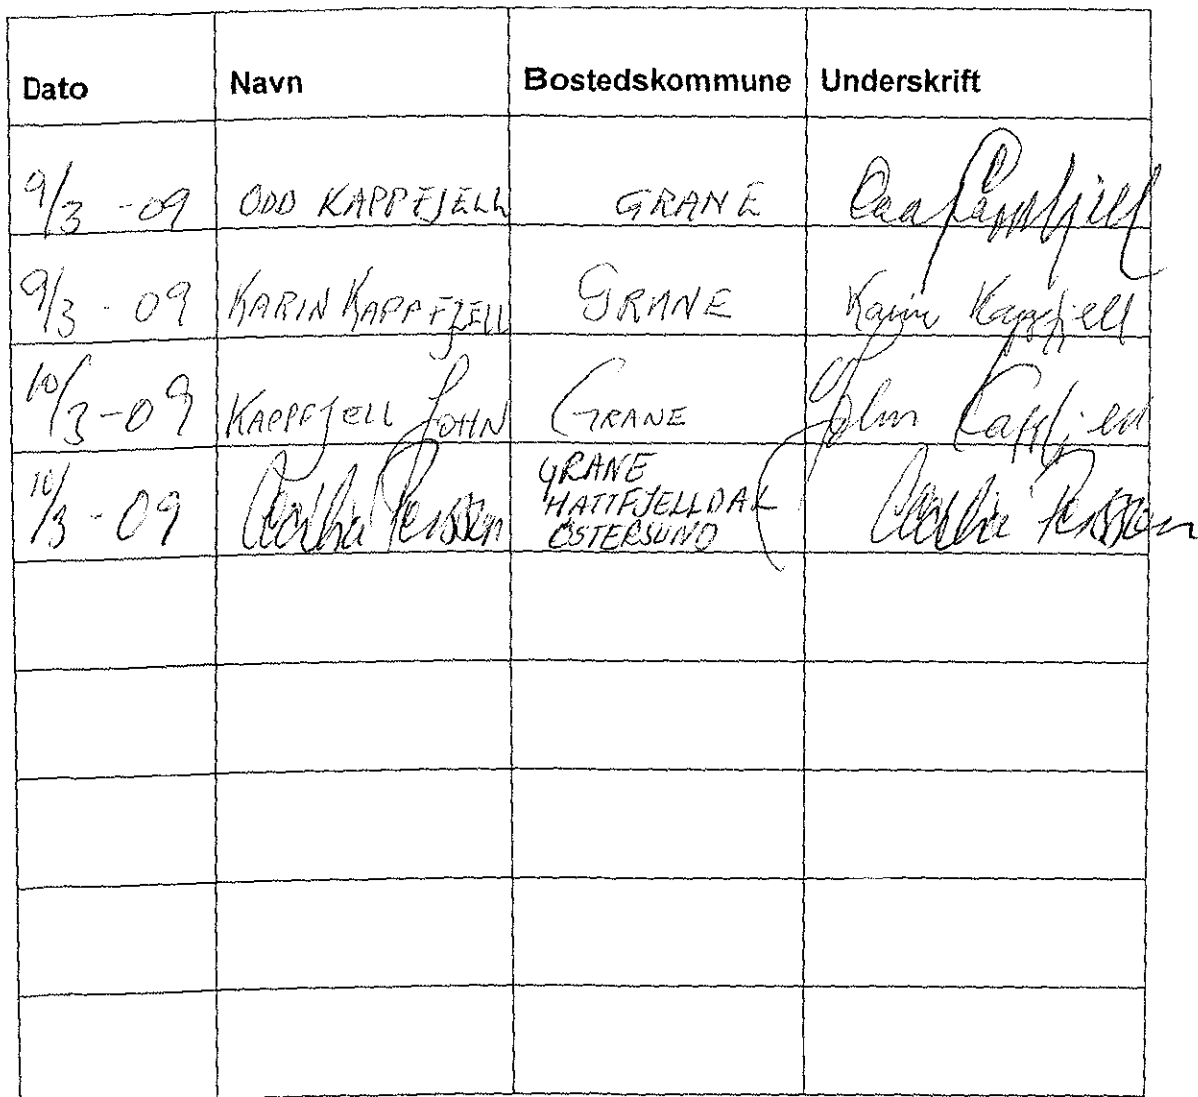 Dato Navn Bostedskommune Underskrift
9/3 -09 ODD KAPPFJELL GRANE Odd Kappfjell
9/3 - 09 KARIN KAPPFJELL GRANE Karin Kappfjell
10/3 -09 KAPPFJELL JOHN GRANE John Kappfjell
10/3 - 09 Cecilia Persson GRANE
HATTFJELLDAL
ÖSTERSUND Cecilia Persson